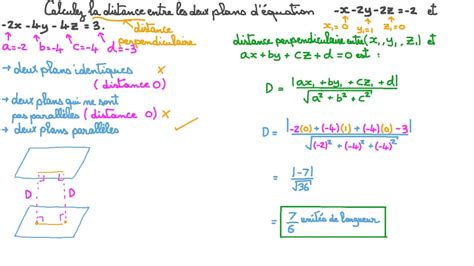 Calculez la distance entre les deux plans d'équation -x-2y-2z=-2 et
-2x-4y-4z=3.
distance perpendiculaire
x₁=0 y₁=1 z₁=0
a=-2 b=-4 c=-4 d=-3
→ deux plans identiques x
(distance 0)
→ deux plans qui ne sont
pas parallèles (distance 0) x
→ deux plans parallèles ✓
D D
distance perpendiculaire entre (x₁, y₁, z₁) et
ax+by+cz+d=0 est :
D = |ax₁+by₁+cz₁+d| / √(a²+b²+c²)
D = |-2(0)+(-4)(1)+(-4)(0)-3| / √((-2)²+(-4)²+(-4)²)
= |-7| / √36
= 7/6 unités de longueur